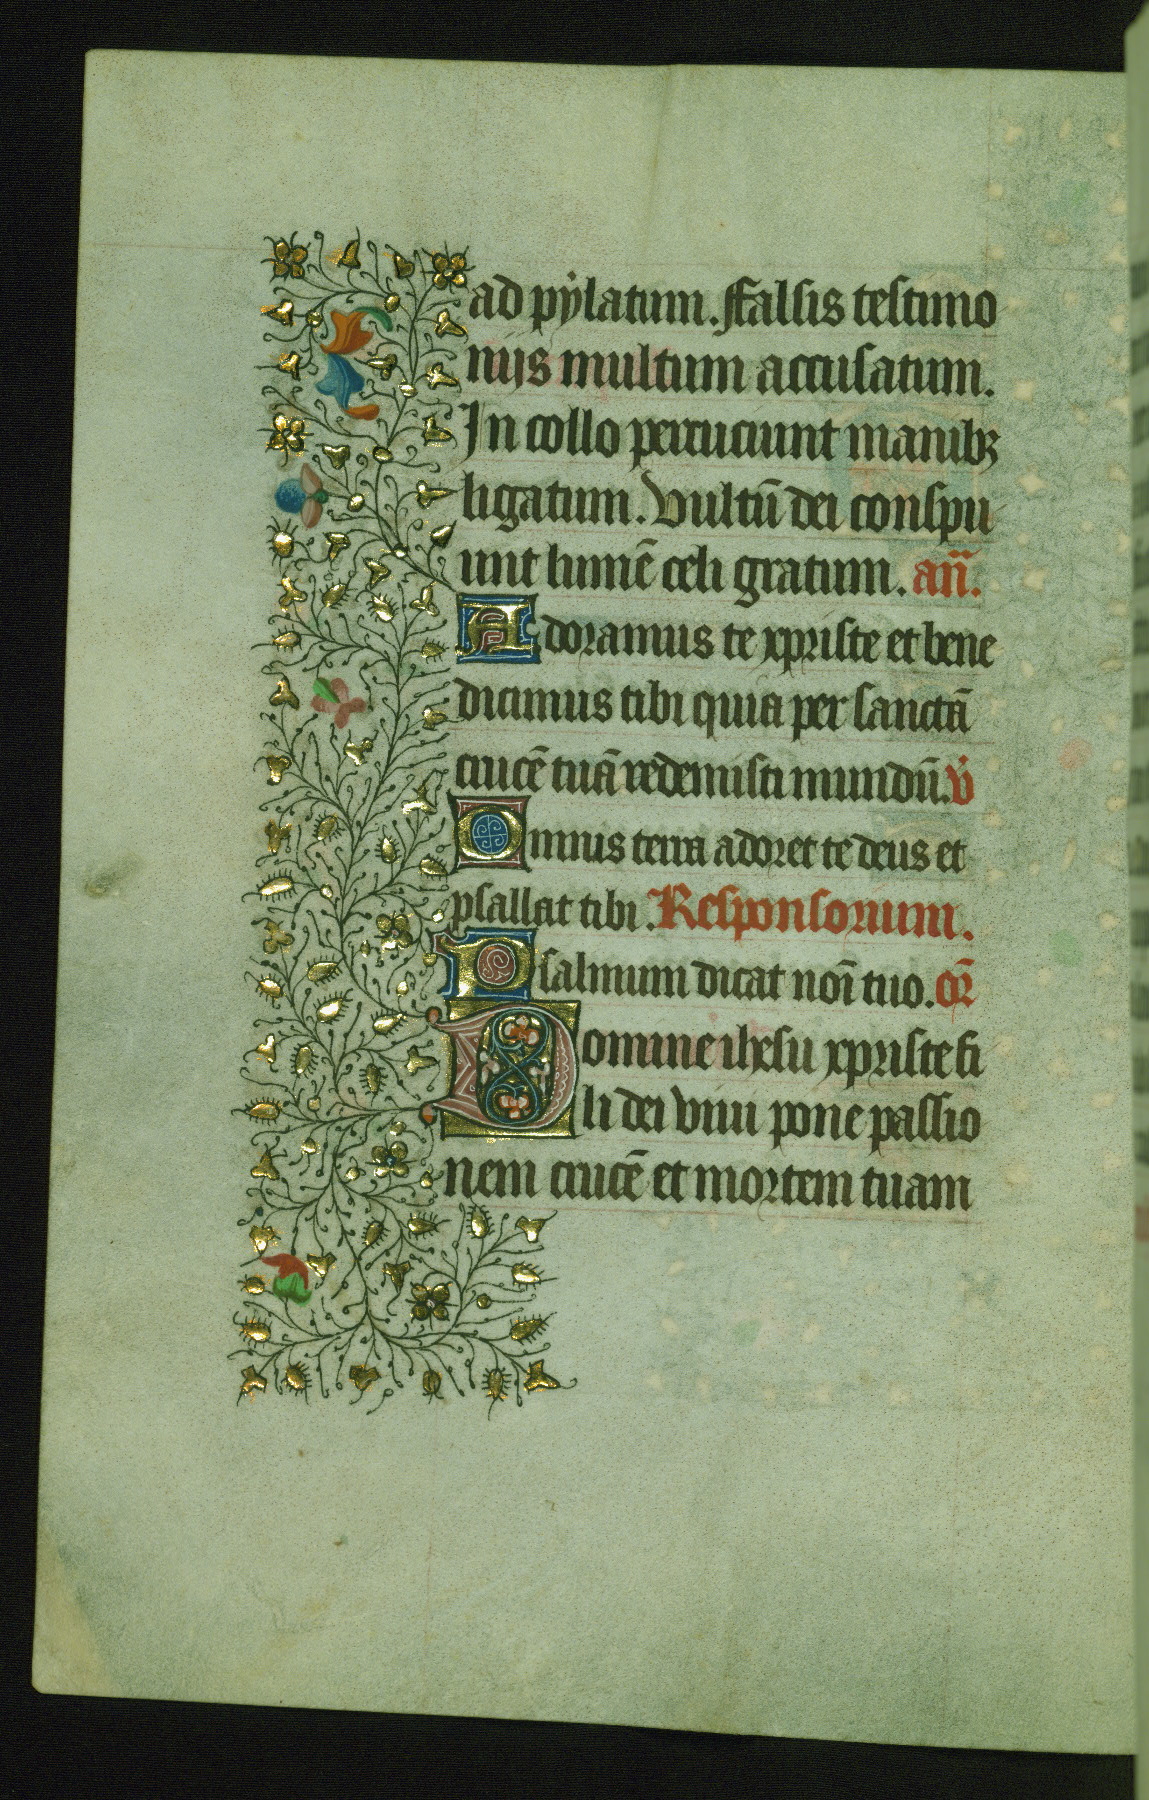 ad pẏlatum. Falsis testimo
nijs multum accusatum.
In collo percuciunt manibꝫ
ligatum. Vultū dei conspu
unt lumē celi gratum. an̄.
Adoramus te xpriste et bene
dicimus tibi quia per sanctā
crucē tuā redemisti mundū. v̇
Omnis terra adoret te deus et
psallat tibi. Responsorium.
Psalmum dicat noī tuo. or̄
Domine ihesu xpriste fi
li dei viui pone passio
nem crucē et mortem tuam